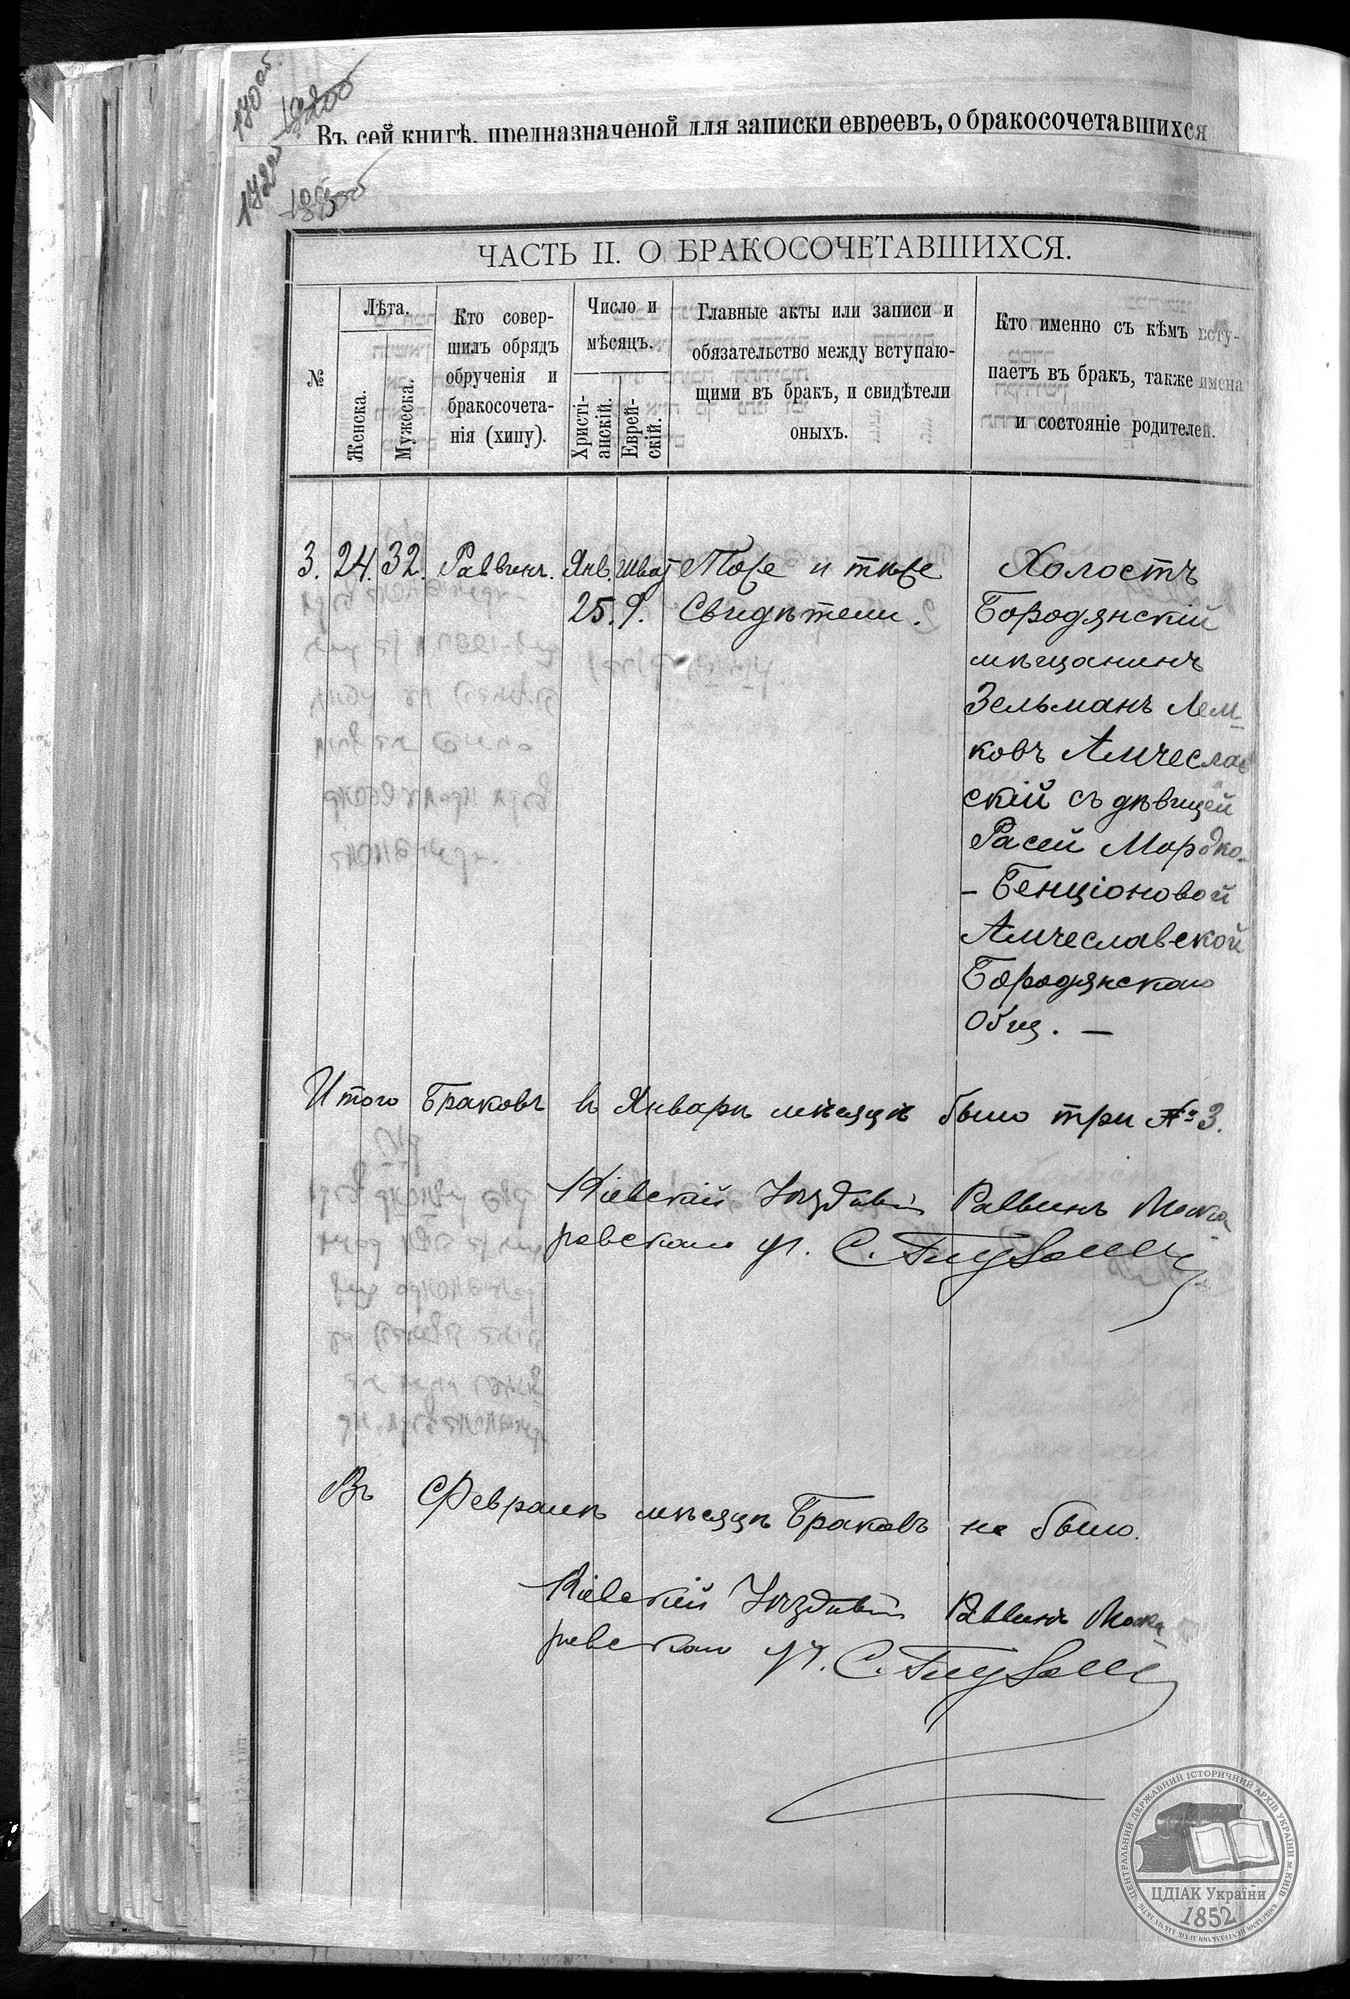 170об.
172об
Въ сей книгѣ, предназначеной для записки евреевъ, о бракосочетавшихся
ЧАСТЬ II. О БРАКОСОЧЕТАВШИХСЯ.
№
Лѣта.
Женска.
Мужеска.
Кто совер-
шилъ обрядъ
обрученія и
бракосочета-
нія (хипу).
Число и
мѣсяцъ.
Христі-
анскій.
Еврей-
скій.
Главные акты или записи и
обязательство между вступаю-
щими въ бракъ, и свидѣтели
оныхъ.
Кто именно съ кѣмъ всту-
паетъ въ бракъ, также имена
и состояніе родителей.
3. 24. 32. Раввинъ. Янв. Шват Тоже и тѣже Холостъ
25. 9. Свидѣтели. Бородянскій
мѣщанинъ
Зельманъ Лем-
ковъ Амчеслав
скій съ дѣвицей
Расей Мордко-
- Бенціоновой
Амчеславской
Бородянскаго
Общ. —
Итого Браковъ въ Январѣ мѣсяцѣ было три № 3.
Кіевскій Уѣздный Раввинъ Мака
ровскаго уч. С.
Въ Февралѣ мѣсяцѣ Браковъ не было.
Кіевскій Уѣздный Раввинъ Мака
ровскаго уч. С.
ЦЕНТРАЛЬНИЙ ДЕРЖАВНИЙ ІСТОРИЧНИЙ АРХІВ УКРАЇНИ М. КИЇВ
ЦДІАК України
1852